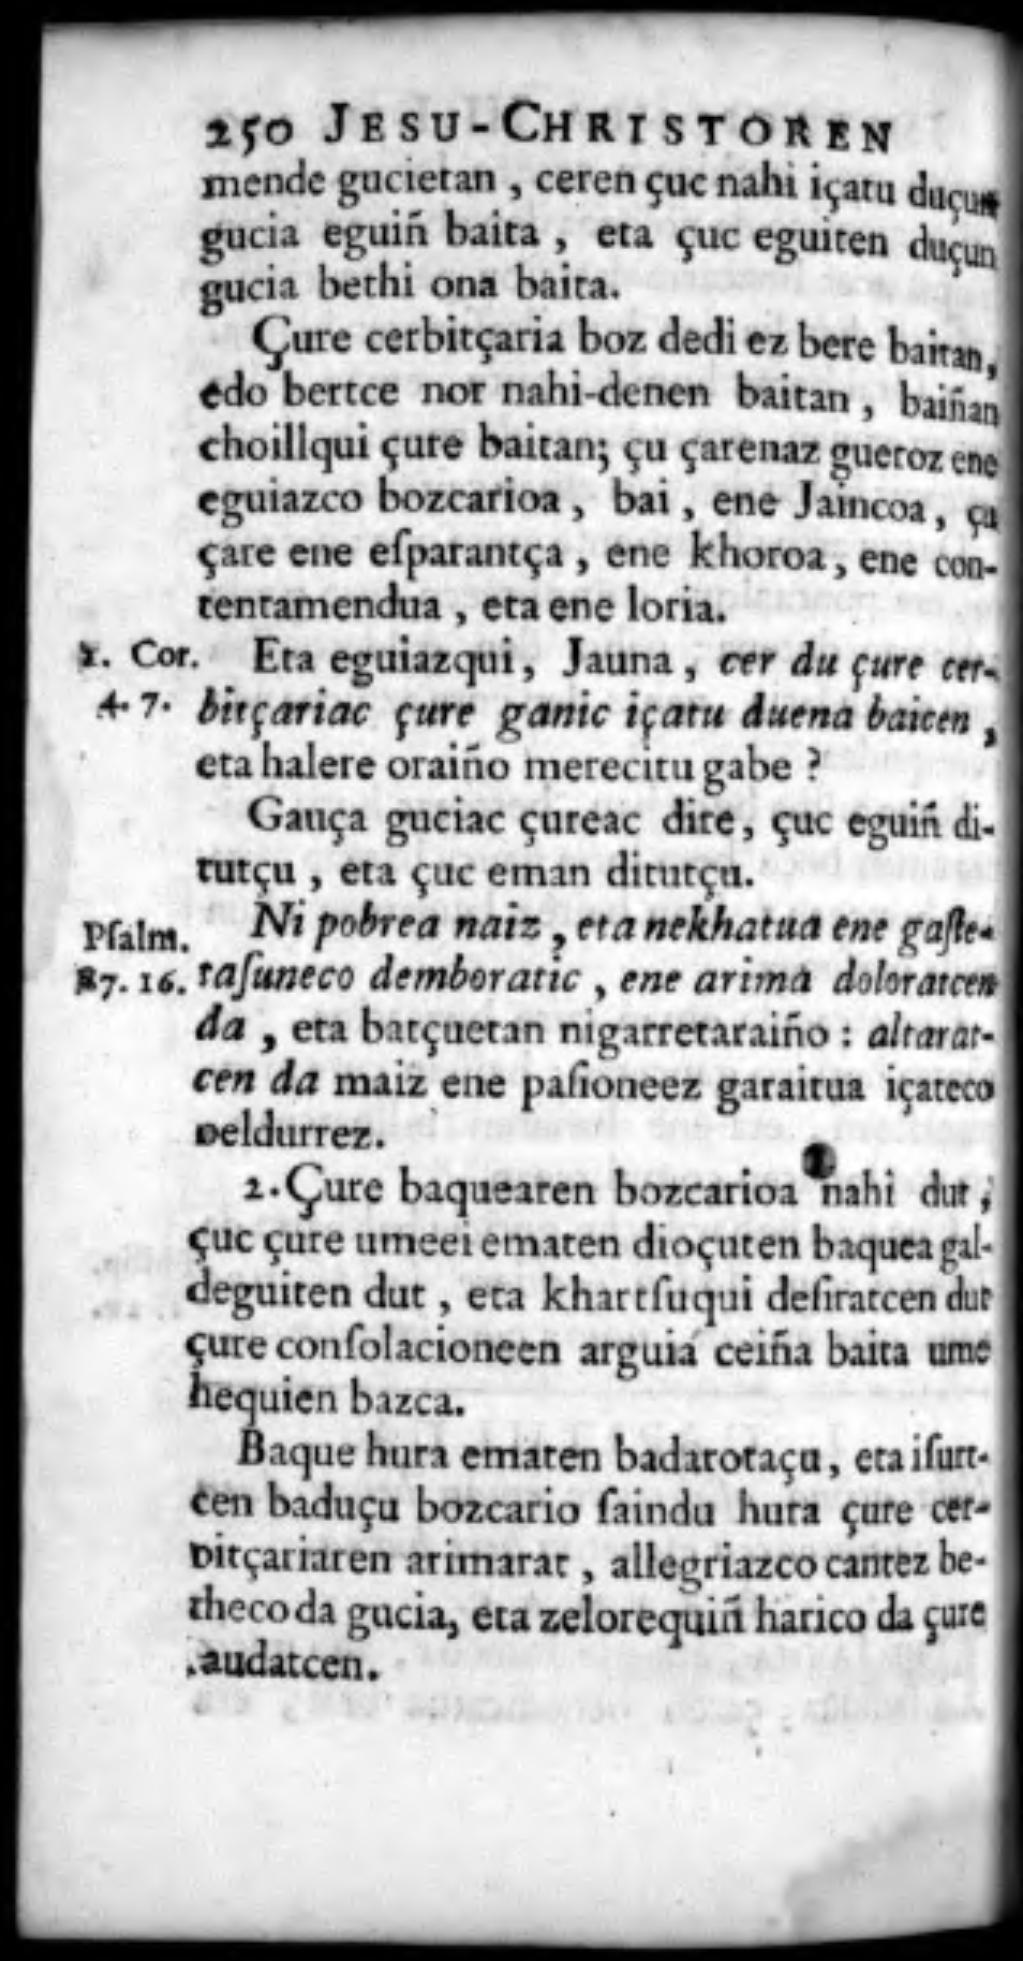 250 JESU-CHRISTOREN
mende gucietan , ceren çuc nahi içatu duçun
gucia eguiñ baita , eta çuc eguiten duçun
gucia bethi ona baita.
Çure cerbitçaria boz dedi ez bere baitan,
edo bertce nor nahi-denen baitan , baiñan
choillqui çure baitan; çu çarenaz gueroz ene
eguiazco bozcarioa , bai , ene Jaincoa , çu
çare ene eſparantça , ene khoroa , ene con-
tentamendua , eta ene loria.
1. Cor. Eta eguiazqui, Jauna , cer du çure cer-
4. 7. bitçariac çure ganic içatu duena baicen ,
eta halere oraiño merecitu gabe ?
Gauça guciac çureac dire, çuc eguiñ di-
tutçu , eta çuc eman ditutçu.
Pſalm. Ni pobrea naiz , eta nekhatua ene gaſte-
87. 16. taſuneco demboratic , ene arima doloratcen
da , eta batçuetan nigarretaraiño : altarat-
cen da maiz ene paſioneez garaitua içateco
beldurrez.
2. Çure baquearen bozcarioa nahi dut ,
çuc çure umeei ematen dioçuten baquea gal-
deguiten dut , eta khartſuqui deſiratcen dut
çure conſolacioneen arguiá ceiña baita ume
hequien bazca.
Baque hura ematen badarotaçu, eta iſurt-
cen baduçu bozcario ſaindu hura çure cer-
bitçariaren arimarat , allegriazco cantez be-
theco da gucia, eta zelorequiñ harico da çure
laudatcen.